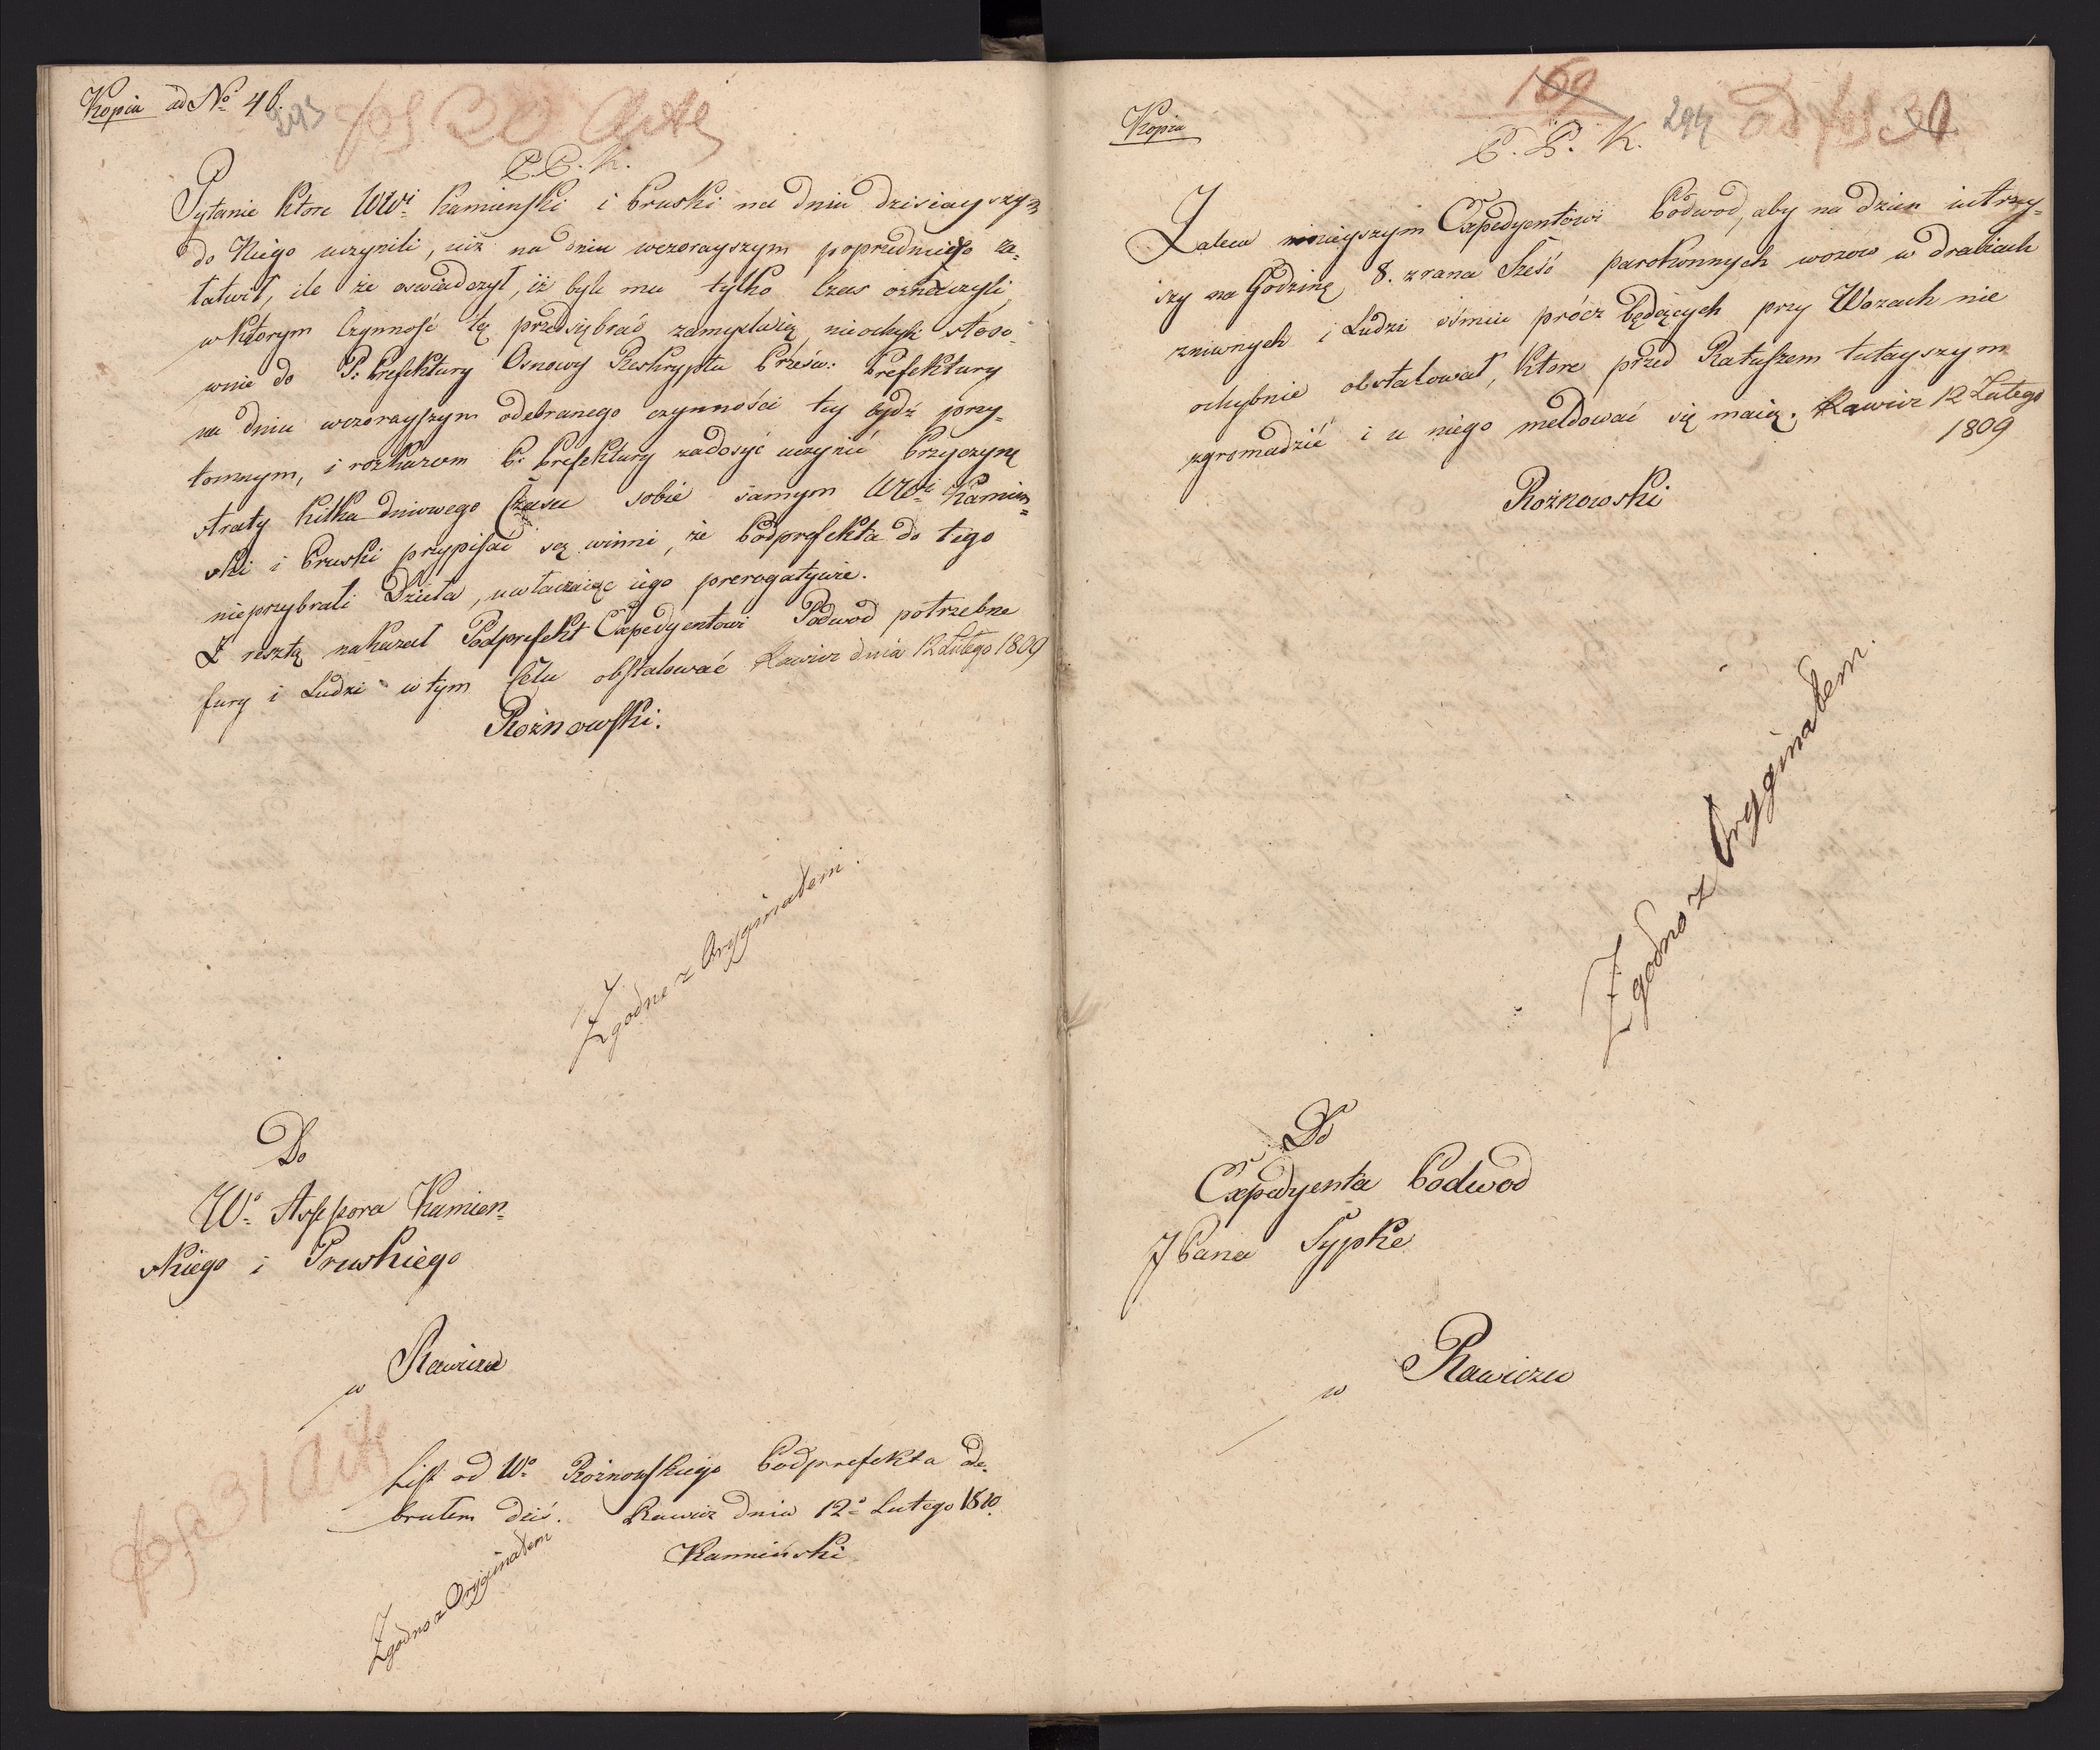 Kopia ad No 46.
293
fol 30 Acta
P. P. K.
Pytanie ktore WWi Kamienski i Pruski na dniu dzisiayszym
do Niego uczynili, iuż na dniu wczorayszym poprzedniczo za-
łatwił, ile że oswiadczył, iż byle mu tylko Czas oznaczyli
w którym Czynność tę przedsięsbrać zamyslaią nieochybi stoso-
wnie do P: Prefektury Osnowy Reskryptu Prześw: Prefektury
na dniu wczorayszym odebranego czynności tey bydź przy-
tomnym, i rozkazom P: Prefektury zadosyć uczynić Przyczynę
straty kilka dniowego Czasu sobie samym WWi Kamien-
ski i Pruski przypisać są winni, że Podprefekta do tego
nieprzybrali Dzieła, uwłaczaiąc iego prerogatywie.
Z resztą nakazał Podprefekt Expedyentowi Podwod potrzebne
fury i Ludzi w tym Celu obstalować Rawicz dnia 12 Lutego 1809
Rożnowski.
Zgodno z Oryginałem.
Do
Wo Assessora Kamien-
skiego i Pruskiego
w Rawiczu
fol 31 Acta
List od Wo Rożnowskiego Podprefekta ode-
brałem dziś. Rawicz dnia 12o Lutego 1810.
Kamieński
Zgodno z Oryginałem
169
Kopia
294
ad fol 30
P. P. K.
Zaleca ninieyszym Expedyentowi Podwod, aby na dzien iutrzey-
szy na Godzinę 8. zrana Sześć parokonnych wozow w drabiach
zniwnych i Ludzi ośmiu prócz będących przy Wozach nie
ochybnie obstalował, ktore przed Ratuszem tutayszym
zgromadzić i u niego meldować się maią. Rawicz 12 Lutego
1809
Rożnowski
Zgodno z Oryginałem.
Do
Expedyenta Podwod
J Pana Sypke
w Rawiczu